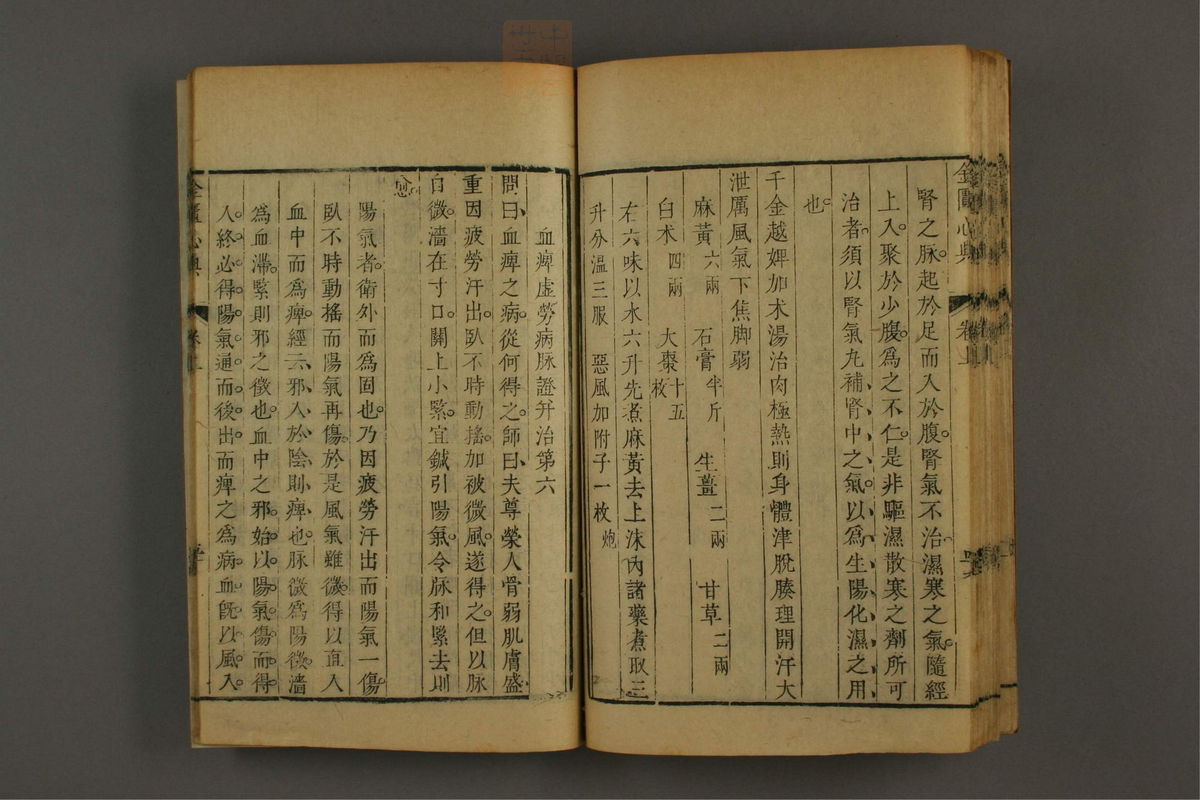 金匱心典 卷上
腎之脉。起於足而入於腹。腎氣不治。濕寒之氣。隨經
上入。聚於少腹。為之不仁。是非驅濕散寒之劑所可
治者。須以腎氣丸補腎中之氣。以為生陽化濕之用
也。
千金越婢加朮湯治肉極熱則身體津脫腠理開汗大
泄厲風氣下焦脚弱
麻黃六兩 石膏半斤 生薑二兩 甘草二兩
白朮四兩 大棗十五枚
右六味以水六升先煮麻黃去上沫內諸藥煮取三
升分溫三服 惡風加附子一枚炮
血痺虛勞病脉證并治第六
問曰血痺之病。從何得之。師曰夫尊榮人骨弱肌膚盛
重因疲勞汗出。臥不時動搖。加被微風。遂得之。但以脉
自微。濇在寸口。關上小緊。宜鍼引陽氣。令脉和緊去則
愈。
陽氣者。衛外而為固也。乃因疲勞汗出而陽氣一傷。
臥不時動搖而陽氣再傷。於是風氣雖微。得以直入
血中而為痺。經云邪入於陰則痺也。脉微為陽微。濇
為血滯。緊則邪之徵也。血中之邪。始以陽氣傷而得
入。終必得陽氣通而後出。而痺之為病。血既以風入
金匱心典 卷上